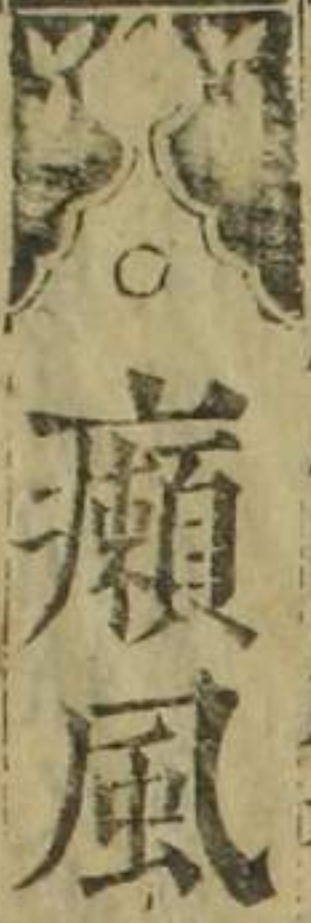 ○癩風